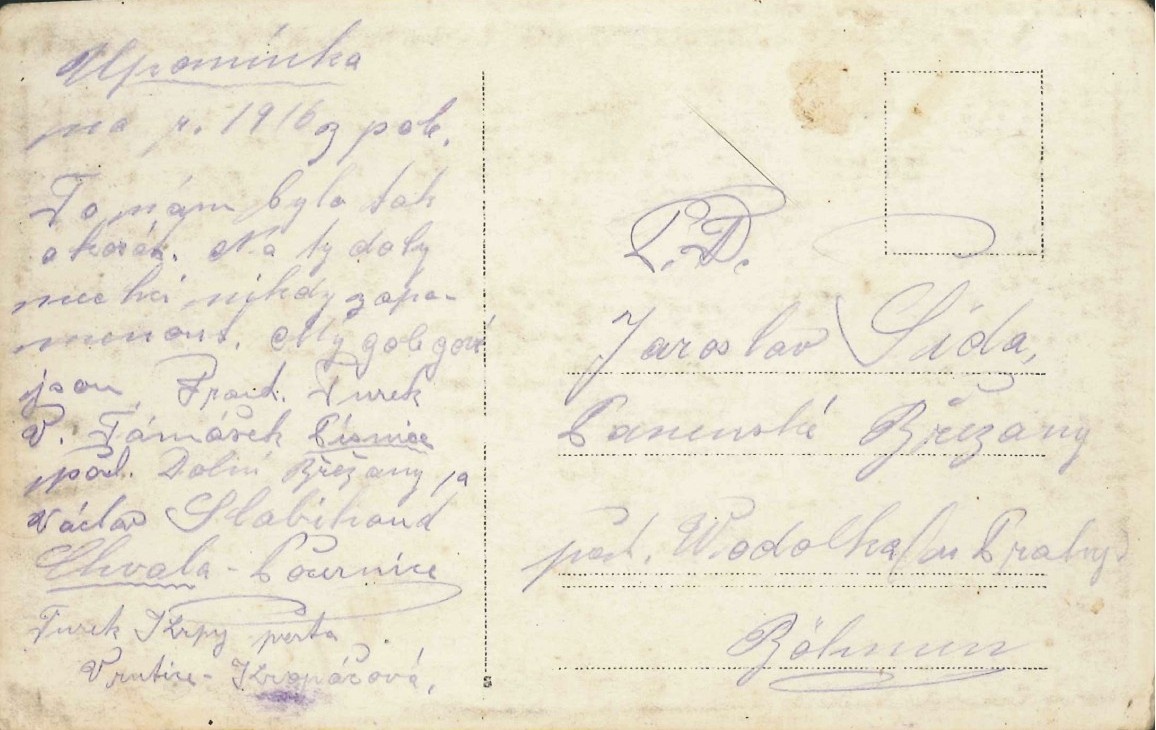 Upomínka
na r. 1916 z pole.
To nám bylo tak
Na ty doly
nechci nikdy zapo-
menout. Mý golegové
jsou Frant. Turek
V. Támášek Písnice
pošt. Dolní Břežany, a
Václav Slabihoud
Chvala - Počernice
Turek Krpy pošta
Vrutice - Kropáčová,
P.T.
Jaroslav Sída,
Panenské Břežany
pošt. Wodolka (u Prahy)
Böhmen
S